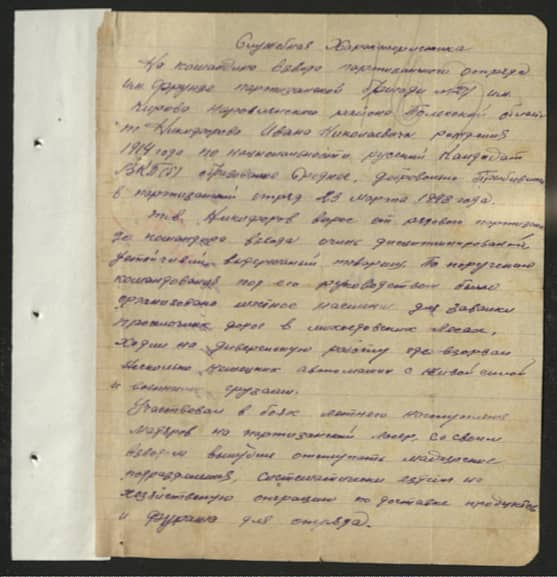 Служебная Характеристика
На командира взвода партизанского отряда
им. Фрунзе партизанской бригады им.
Кирова Наровлянского района Полесской области
т. Никифорова Ивана Николаевича рождения
1914 года по национальности русский Кандидат
ВКП(б) образование среднее, добровольно Прибывшего
в партизанский отряд 23 марта 1943 года.
Тов. Никифоров вырос от рядового партизана
до командира взвода очень дисциплинированный
устойчивый выдержанный товарищ. По поручению
командования под его руководством было
организовано местное население для завалки
проселочных дорог в лесах,
Ходил на диверсионную работу где взорвал
несколько немецких автомашин с живой силой
и военными грузами.
Участвовал в боях летнего наступления
Мадьяров на партизанский лагерь. Со своим
взводом отступать мадьярские
подразделения, систематически ездил на
хозяйственную операцию по доставке продуктов
и фуража для отряда.